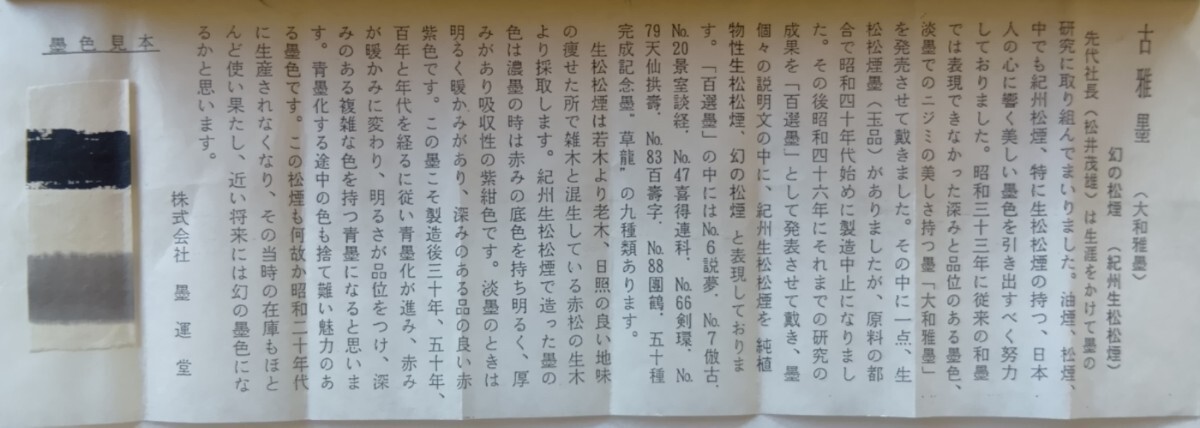 古雅墨 （大和雅墨）
幻の松煙 （紀州生松松煙）
先代社長（松井茂雄）は生涯をかけて墨の
研究に取り組んでまいりました。油煙、松煙、
中でも紀州松煙、特に生松松煙の持つ、日本
人の心に響く美しい墨色を引き出すべく努力
しておりました。昭和三十三年に従来の和墨
では表現できなかった深みと品位のある墨色、
淡墨でのニジミの美しさ持つ墨「大和雅墨」
を発売させて戴きました。その中に一点、生
松松煙墨（玉品）がありましたが、原料の都
合で昭和四十年代始めに製造中止になりまし
た。その後昭和四十六年にそれまでの研究の
成果を「百選墨」として発表させて戴き、墨
個々の説明文の中に、紀州生松松煙を 純植
物性生松松煙、幻の松煙 と表現しておりま
す。「百選墨」の中にはNo.6説夢．No.7倣古．
No.20景室談経．No.47喜得連科．No.66剣環．No.
79天仙拱壽．No.83百壽字．No.88團鶴．五十種
完成記念墨。草龍”の九種類あります。
生松松煙は若木より老木、日照の良い地味
の痩せた所で雑木と混生している赤松の生木
より採取します。紀州生松松煙で造った墨の
色は濃墨の時は赤みの底色を持ち明るく、厚
みがあり吸収性の紫紺色です。淡墨のときは
明るく暖かみがあり、深みのある品の良い赤
紫色です。この墨こそ製造後三十年、五十年、
百年と年代を経るに従い青墨化が進み、赤み
が暖かみに変わり、明るさが品位をつけ、深
みのある複雑な色を持つ青墨になると思いま
す。青墨化する途中の色も捨て難い魅力のあ
る墨色です。この松煙も何故か昭和二十年代
に生産されなくなり、その当時の在庫もほと
んど使い果たし、近い将来には幻の墨色にな
るかと思います。
株式会社 墨運堂
墨色見本